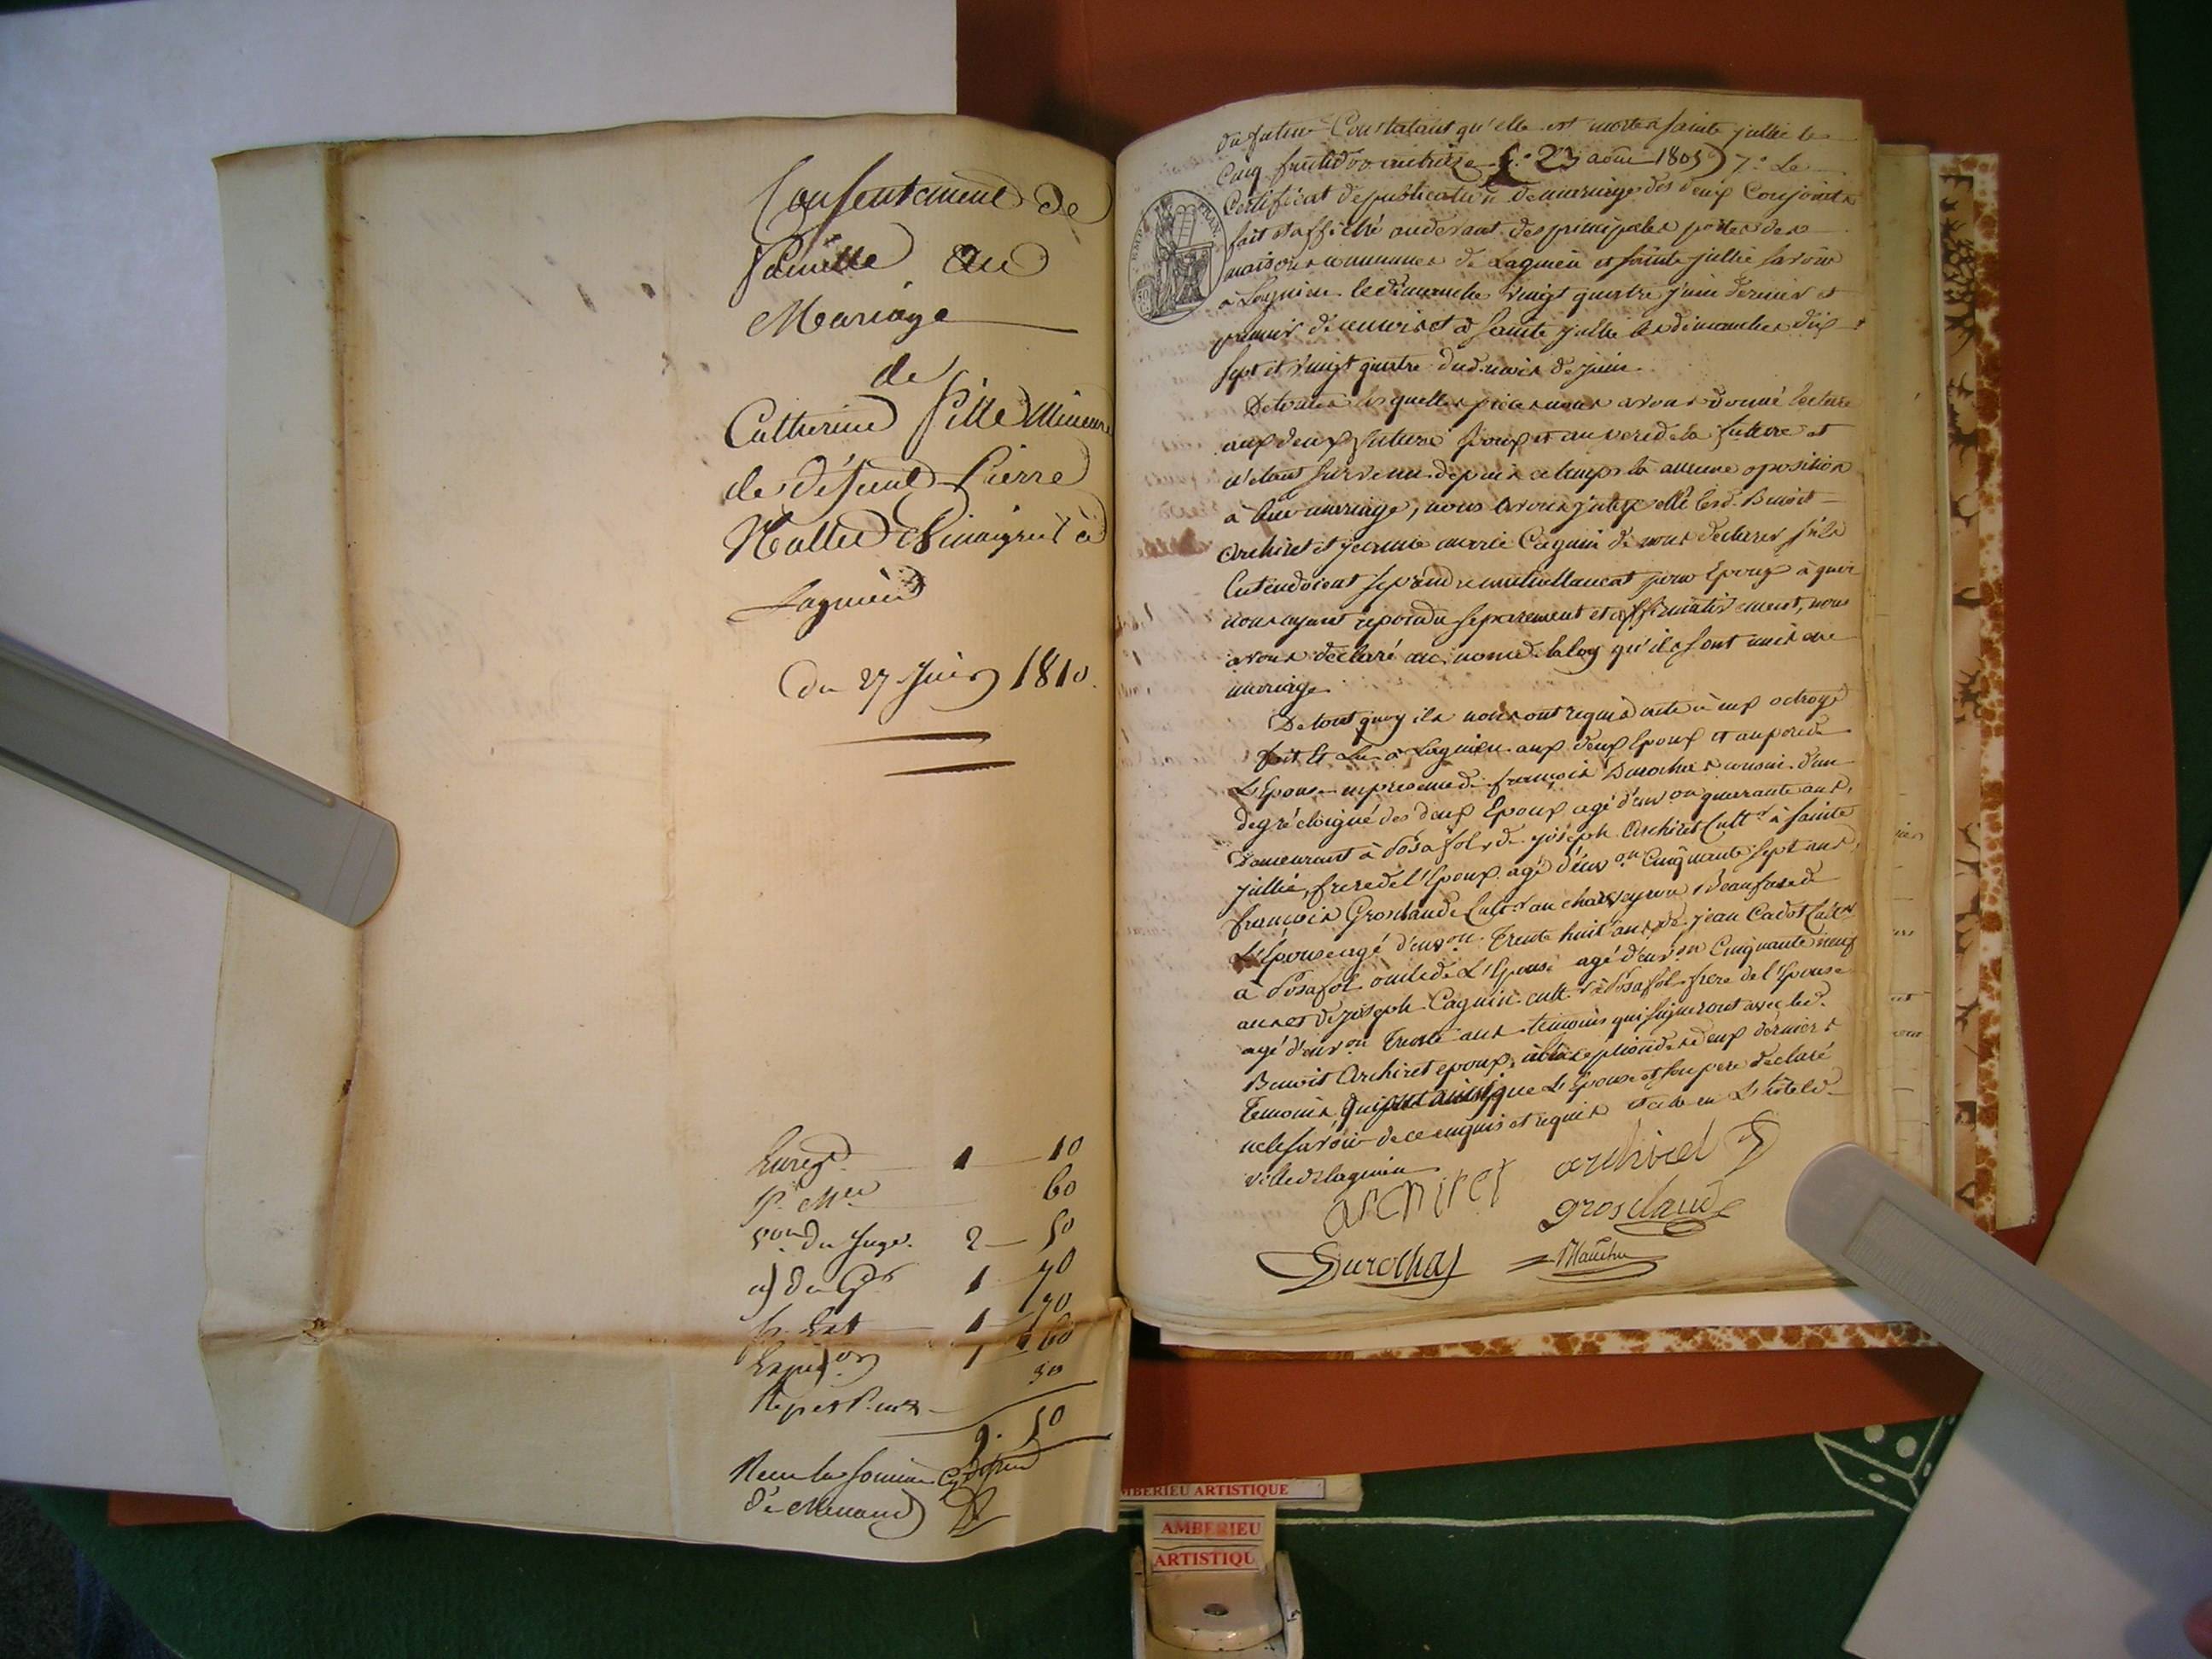 Consentement de
famille au
Mariage
de
Catherine fille Mineure
de défunt Pierre
à
Lagnieu
Du 27 Juin 1810.
Enregt. 1 10
60
von du Juge. 2 50
1 70
1 70
Expedon 1 60
50
9. 50
Reçu la somme
du futur Constatant qu'elle est morte à sainte jullie le
Cinq fructidor an treize (23 aout 1805) 7.o Le
Certificat de publication de mariage des deux Conjoints
fait et affiché audevant des principales portes des
maisons communes de Lagnieu et sainte jullie savoir
à Lagnieu le dimanche vingt quatre juin dernier et
premier de ce mois et à sainte jullie les dimanches dix
sept et vingt quatre dud. mois de juin.
De toutes les quelles pieces nous avons donné lecture
aux deux futurs Epoux et au pere de la future et
n'etant survenu depuis ce temps là aucune oposition
à leur mariage, nous avons interpellé led. Benoit
Archiret et jeanne marie Cagnin de nous declarer s'ils
Entendoient se prendre mutuellement pour Epoux à quoi
nous ayant repondu separement et affirmativement, nous
avons declaré au nom de la loy qu'ils sont unis en
mariage
De tout quoy ils nous ont requis acte à eux octroyé
fait et Lu à Lagnieu aux deux Epoux et au pere de
L'Epouse en presence de françois Durochat cousin d'un
degré eloigné des deux Epoux agé d'environ quarante ans,
Demeurant à Posafol, de joseph Archiret Cultr. à sainte
jullie, frere de l'Epoux agé d'environ Cinquante sept ans,
françois Grosclaude Cultr. au charveyron Beaufrere de
L'Epouse agé d'environ Trente huit ans, de jean Cadot Cultr
à Posafol oncle de L'Epouse agé d'environ Cinquante neuf
ans et de joseph Cagnin cultr. à Posafol frere de l'Epouse
agé d'environ Trente ans temoins qui signeront avec led.
Benoit Archiret epoux, à l'exception des deux derniers
Temoins qui ont ainsi que L'Epouse et son pere declaré
ne le savoir de ce enquis et requis
ville de lagnieu
archiret archiret
grosclaude
Durochat
EMP. FRAN.
50
MBERIEU ARTISTIQUE
AMBERIEU
ARTISTIQU